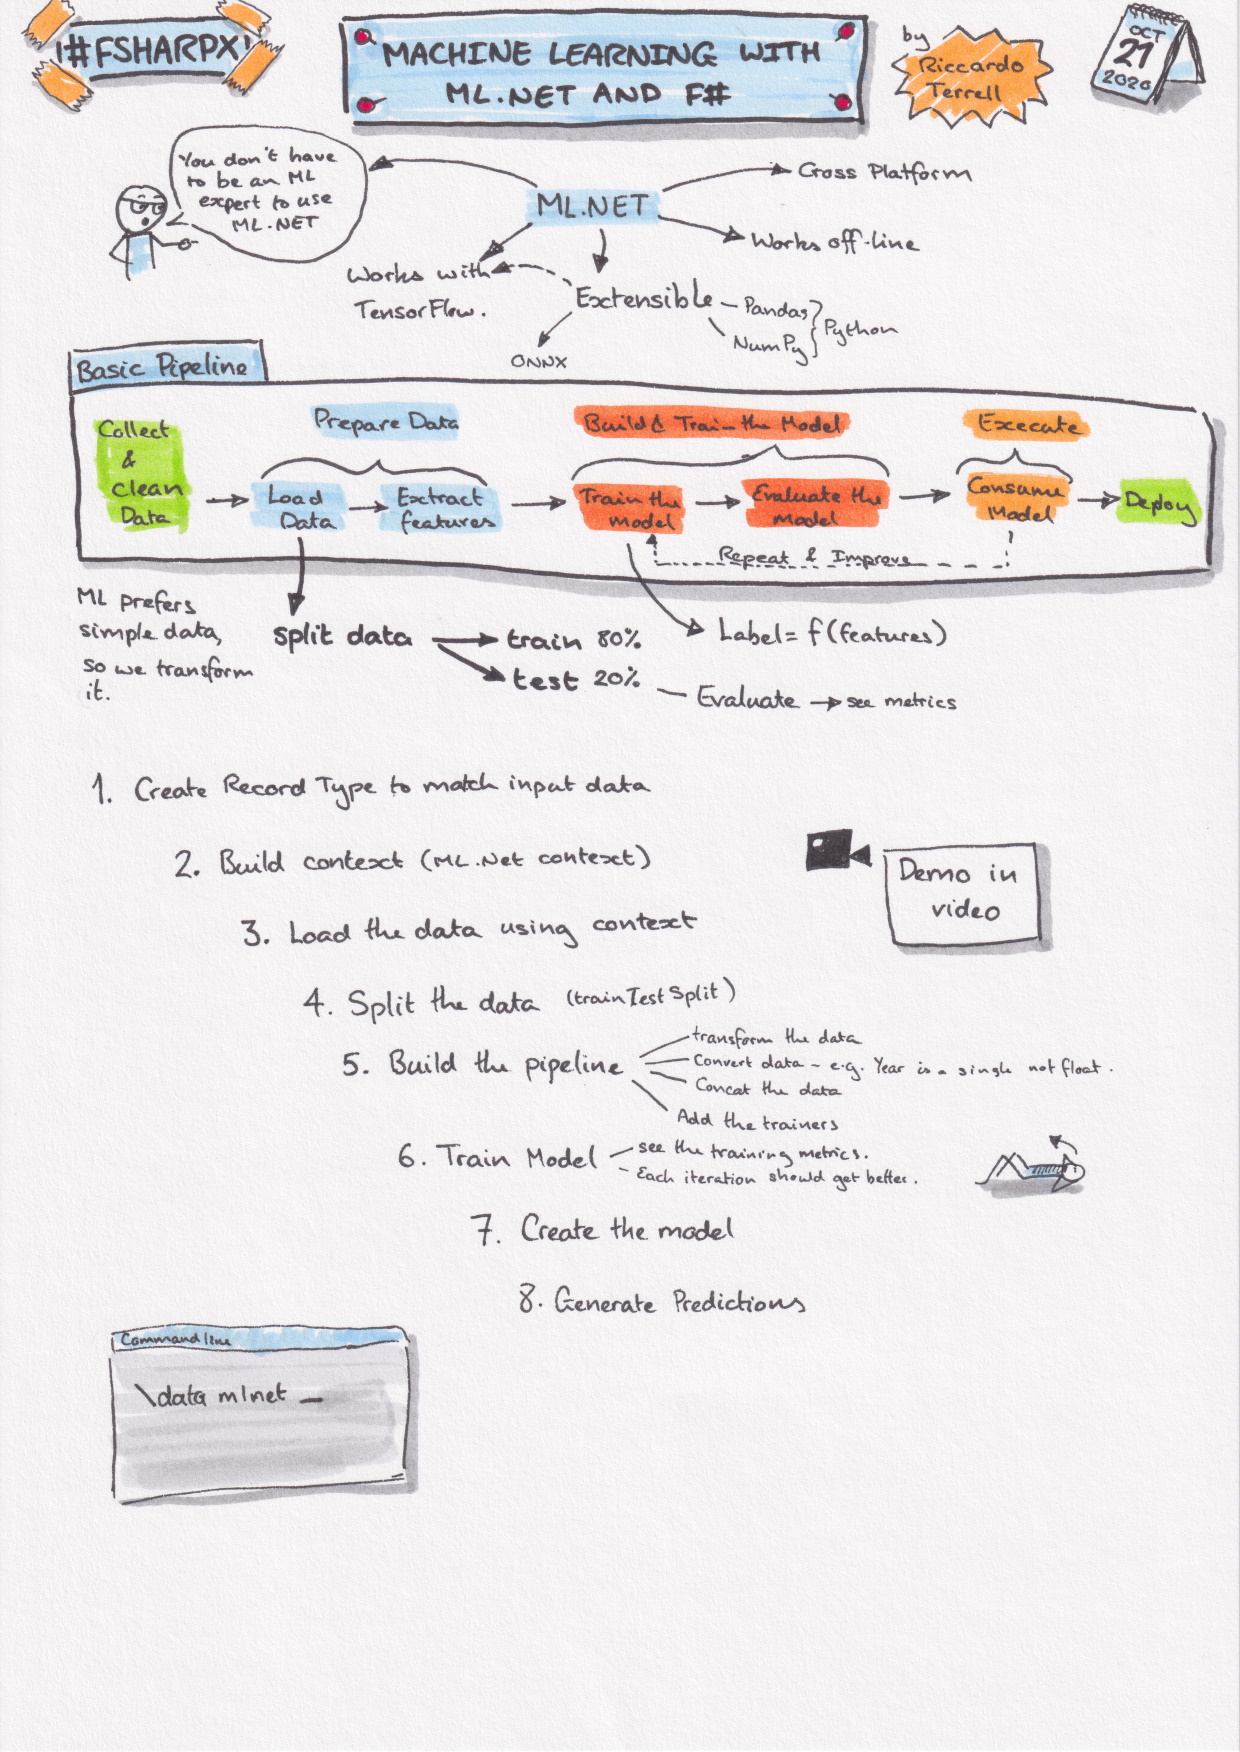 #FSHARPX
MACHINE LEARNING WITH
ML.NET AND F#
by
Riccardo
Terrell
OCT
21
2020
You don't have
to be an ML
expert to use
ML.NET
ML.NET
Cross Platform
Works off-line
Works with
TensorFlow.
Extensible
Pandas
NumPy
Python
ONNX
Basic Pipeline
Collect
&
clean
Data
Prepare Data
Load
Data
Extract
features
Build & Train the Model
Train the
model
Evaluate the
model
Execute
Consume
Model
Deploy
Repeat & Improve
ML prefers
simple data,
so we transform
it.
split data
train 80%
test 20%
Label = f(features)
Evaluate → see metrics
1. Create Record Type to match input data
2. Build context (ML.Net context)
3. Load the data using context
4. Split the data (trainTestSplit)
5. Build the pipeline
transform the data
Convert data - e.g. Year is a single not float.
Concat the data
Add the trainers
6. Train Model
see the training metrics.
Each iteration should get better.
7. Create the model
8. Generate Predictions
Demo in
video
Command line
\data mlnet _